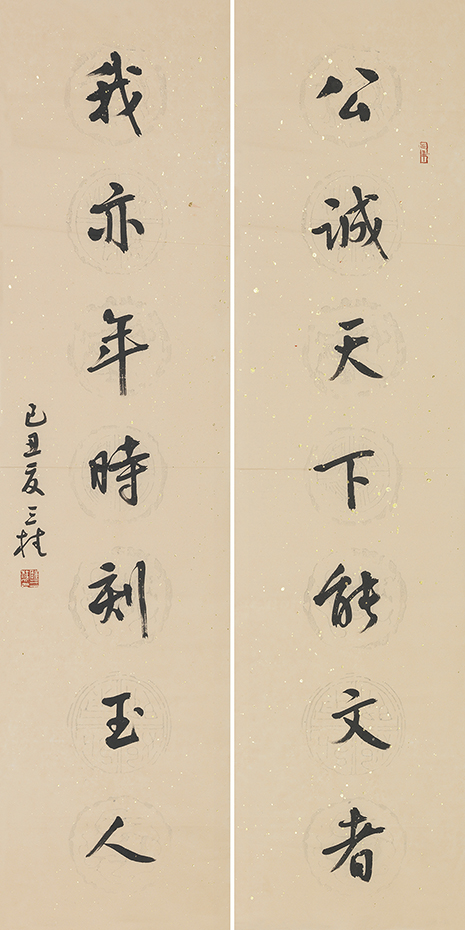 公誠天下能文者
我亦年時刻玉人
己丑夏三桂